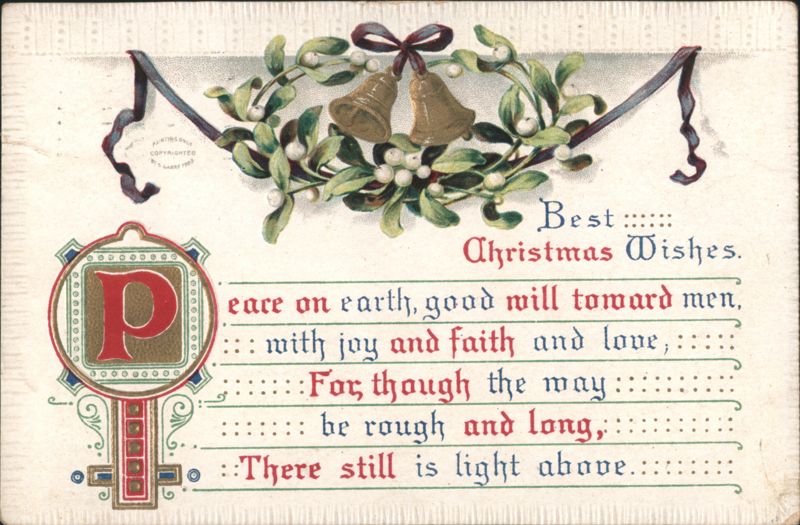 PAINTING ONLY
COPYRIGHTED
Best
Christmas Wishes.
Peace on earth, good will toward men,
with joy and faith and love;
For, though the way
be rough and long,
There still is light above.